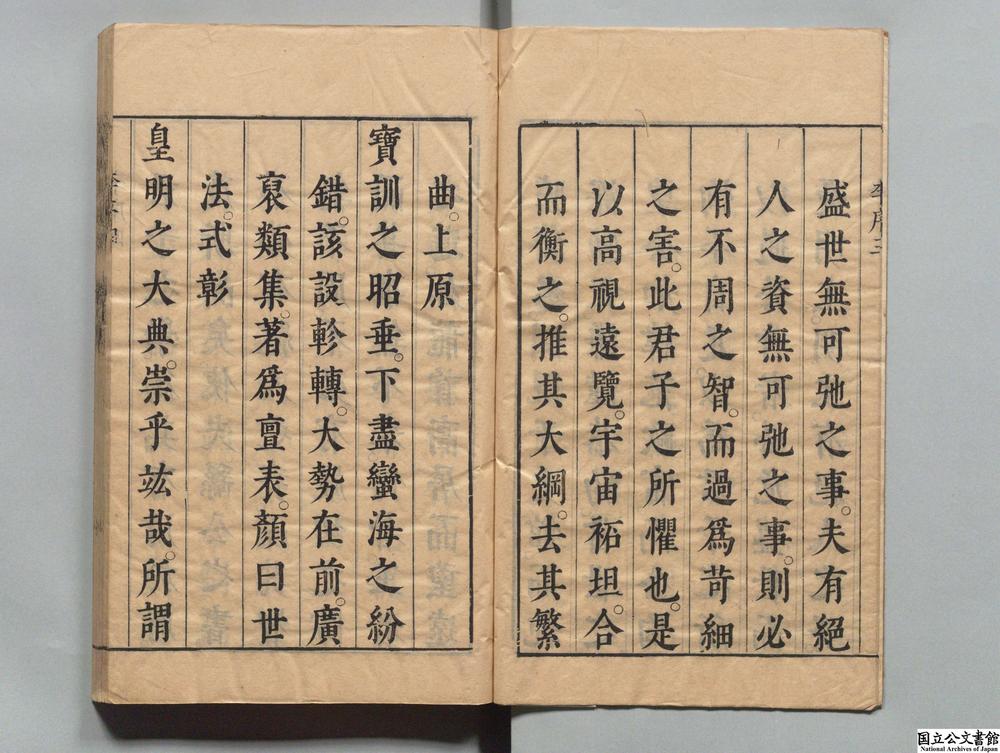 李序三
盛世無可弛之事。夫有絕
人之資無可弛之事。則必
有不周之智。而過爲苛細
之害。此君子之所懼也。是
以高視遠覽。宇宙祏坦。合
而衡之。推其大綱。去其繁
曲。上原
寶訓之昭垂。下盡蠻海之紛
錯。該設軫轉。大勢在前。廣
裒類集。著爲亶表。顏曰世
法。式彰
皇明之大典。崇乎竑哉。所謂
国立公文書館
National Archives of Japan